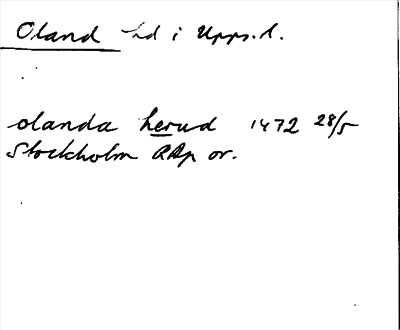 Oland hd i Upps.l.
olanda herud 1472 28/5
Stockholm RAp or.